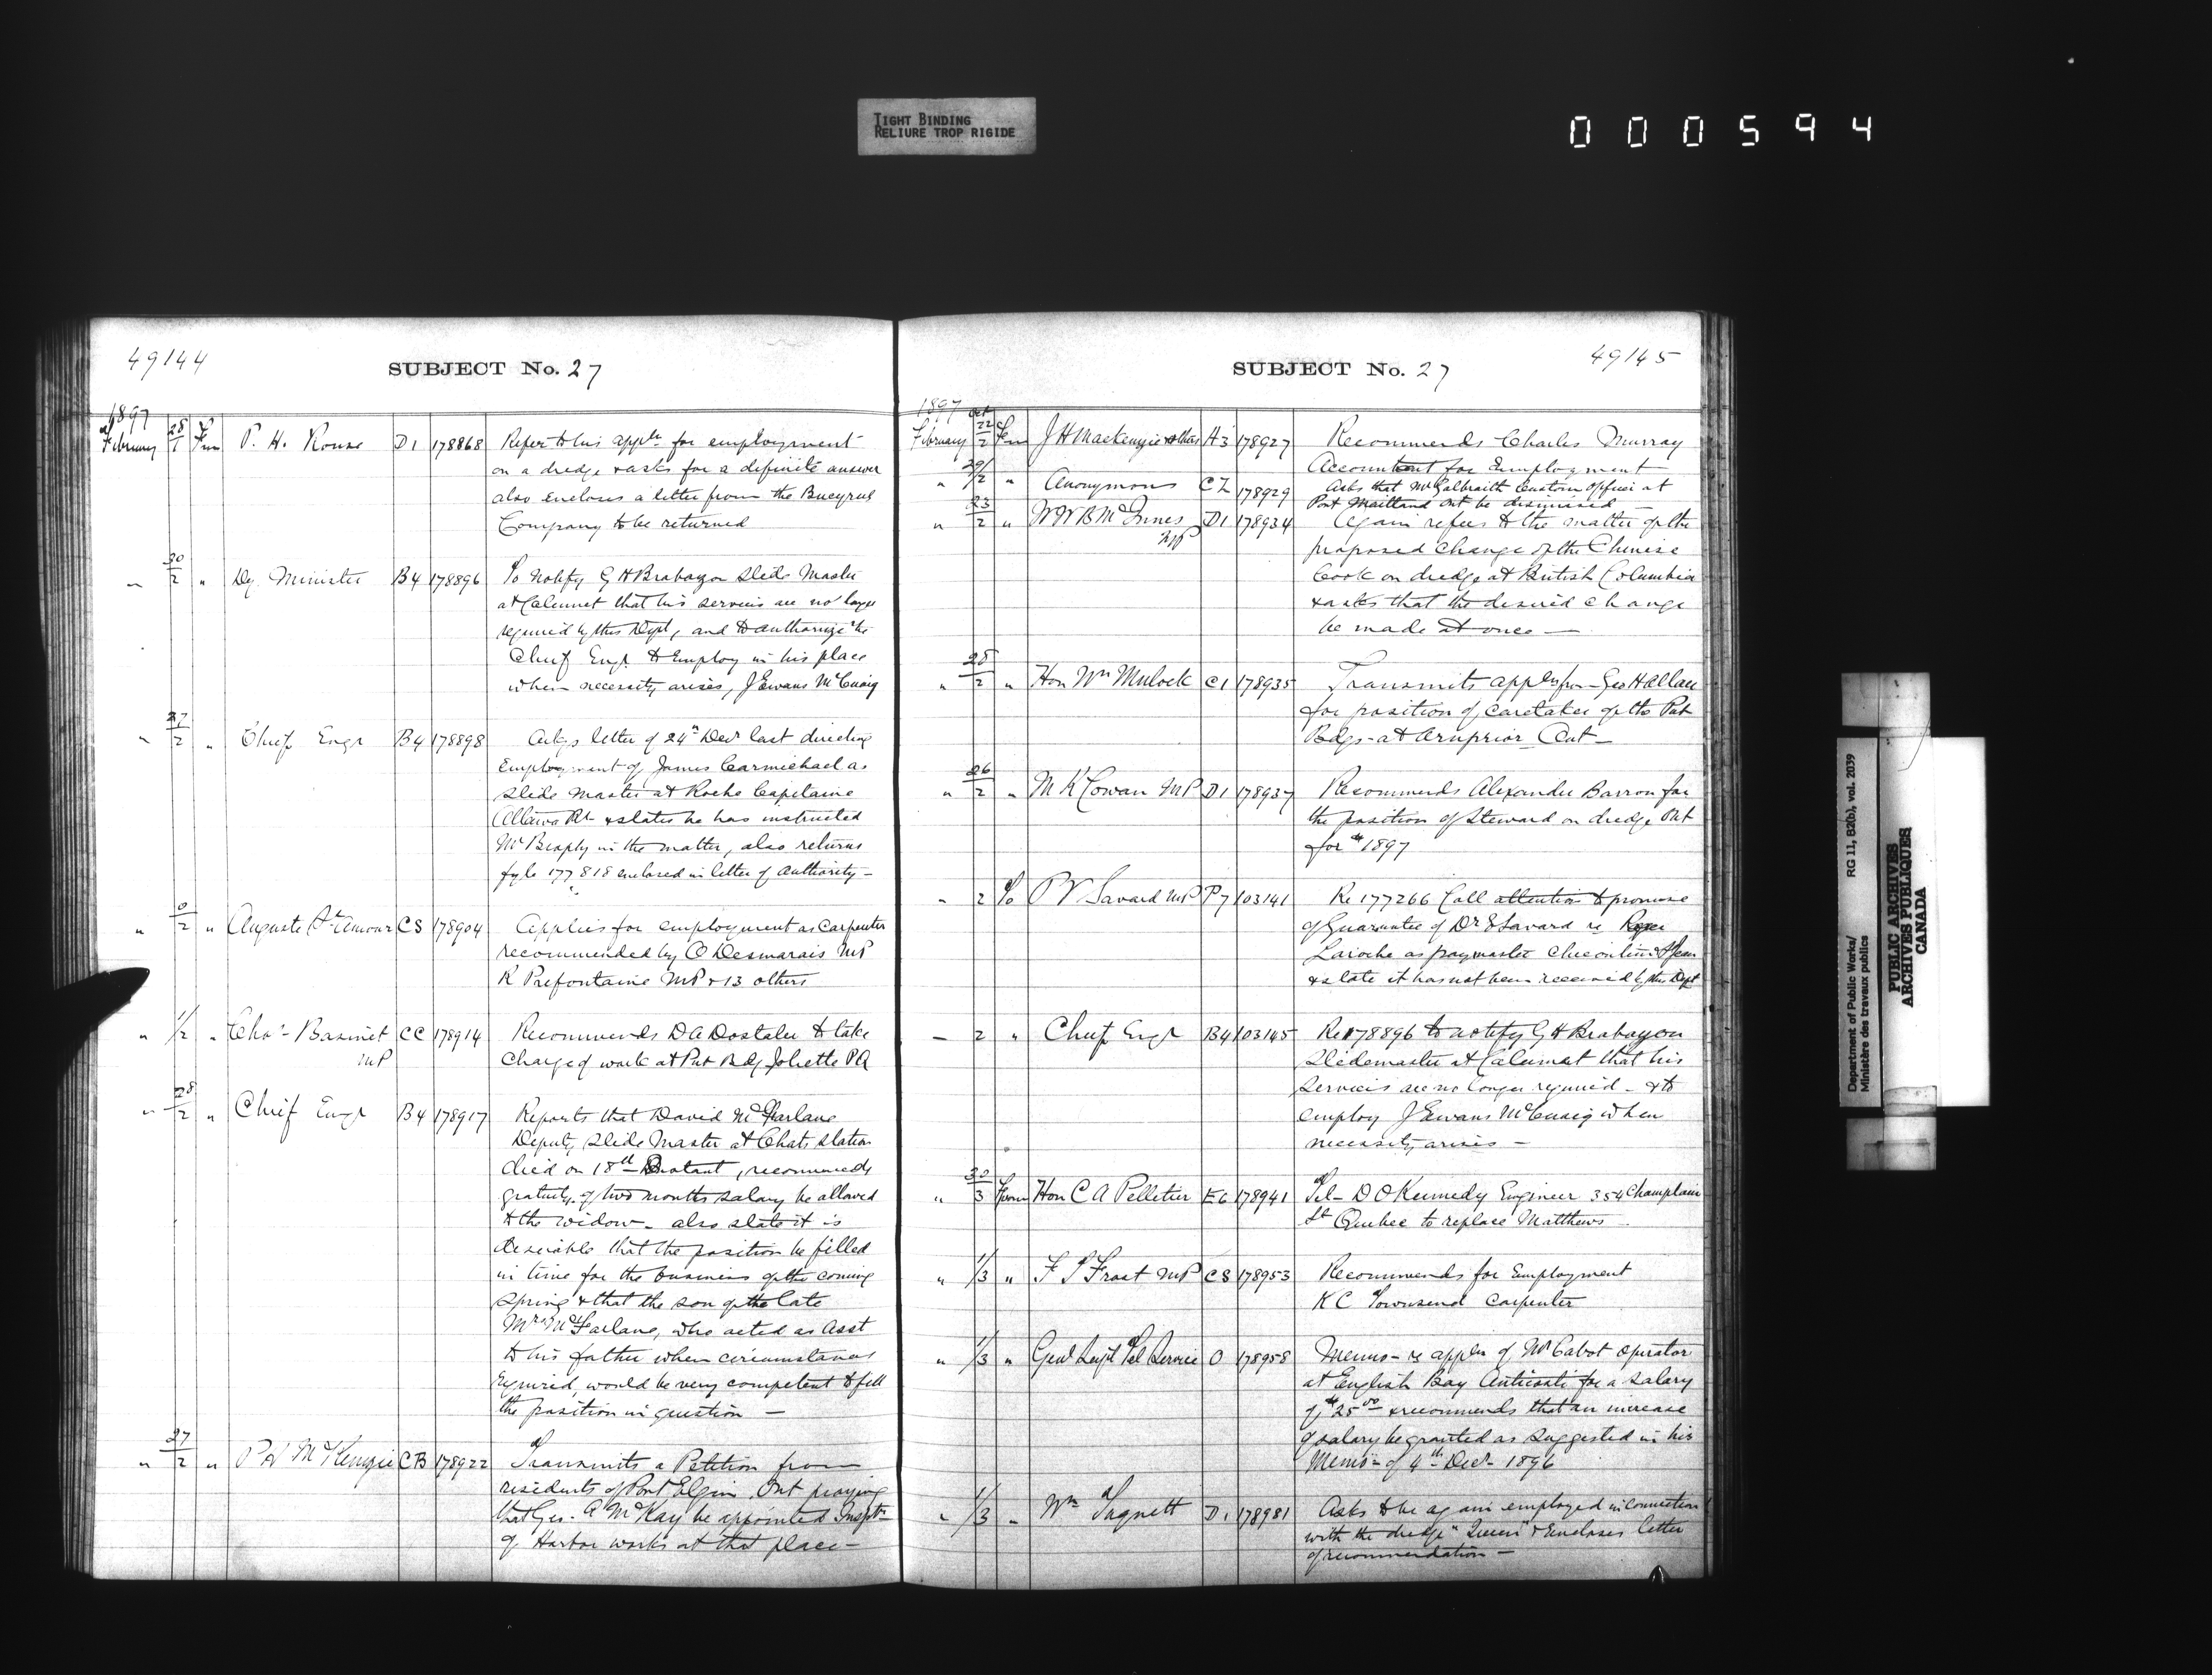 TIGHT BINDING
RELIURE TROP RIGIDE
000594
49144
SUBJECT No. 27
1897
February 28/1 From P. H. Rouse D1 178868 Refers to his appln for employment
on a dredge & asks for a definite answer
also encloses a letter from the Bucyrus
Company to be returned
" 20/2 " Dy. Minister B4 178896 To notify G H Brabazon Slide Master
at Calumet that his services are no longer
required by this Dept, and to authorize the
Chief Engr to employ in his place
when necessity arises, J Ewans McCuaig
" 27/2 " Chief Engr B4 178898 Ackgs letter of 24th Decr last directing
employment of James Carmichael as
Slide Master at Roche Capitaine
Ottawa Rr & states he has instructed
Mr Brophy in the matter, also returns
fyle 177818 enclosed in letter of authority —
" 0/2 " Auguste St Amour CS 178904 Applies for employment as carpenter
recommended by O Desmarais MP
R Prefontaine MP & 13 others
" 1/2 " Chas Bazinet CC 178914 Recommends D A Dostaler to take
MP charge of work at Pub Bdg Joliette PQ
" 28/2 " Chief Engr B4 178917 Reports that David McFarlane
Deputy Slide Master at Chats Station
died on 18th Instant, recommends
gratuity of two months salary be allowed
to the widow — also states it is
desirable that the position be filled
in time for the business of the coming
spring & that the son of the late
Mr McFarlane, who acted as Asst
to his father when circumstances
required, would be very competent to fill
the position in question —
" 27/2 " P H McKenzie CB 178922 Transmits a Petition from
residents of Port Elgin Ont praying
that Geo. A McKay be appointed Inspr
of Harbor works at that place —
49145
SUBJECT No. 27
1897 Oct
February 22/2 From J H Mackenzie & others H3 178927 Recommends Charles Murray
Accountant for Employment
" 20/2 " Anonymous CZ 178929 Asks that Mr Galbraith Custom Officer at
Port Maitland Ont be dismissed —
" 23/2 " W W B McInnes D1 178934 Again refers to the matter of the
MP proposed change of the Chinese
Cook on dredge at British Columbia
& asks that the desired change
be made at once —
" 25/2 " Hon Wm Mulock C1 178935 Transmits appln from Geo H Allan
for position of caretaker of the Pub
Bdgs at Arnprior Ont —
" 26/2 " M K Cowan MP D1 178937 Recommends Alexander Barron for
the position of Steward on dredge Ont
for 1897
" 2 To P V Savard MP P7 103141 Re 177266 Call attention to promise
of Guarantee of Dr E Savard re
Laroche as paymaster Chicoutimi & Jean
& state it has not been received by this Dept
— 2 " Chief Engr B4 103145 Re 178896 to notify G H Brabazon
Slidemaster at Calumet that his
services are no longer required — & to
employ J Ewans McCuaig when
necessity arises —
" 30/3 From Hon C A Pelletier E6 178941 Tel — D O Kennedy Engineer 354 Champlain
St Quebec to replace Matthews —
" 1/3 " F T Frost MP CS 178953 Recommends for Employment
K C Townsend Carpenter
" 1/3 " Genl Supt Tel Service O 178958 Memo — re appln of Mr Cabot Operator
at English Bay Anticosti for a salary
of $25.00 & recommends that an increase
of salary be granted as suggested in his
Memo of 4th Decr 1896
" 1/3 " Wm Tugnett D1 178981 Asks to be again employed in connection
with the dredge "Queen" & encloses letter
of recommendation —
Department of Public Works/ RG 11, B2(b), vol. 2039
Ministère des travaux publics
PUBLIC ARCHIVES
ARCHIVES PUBLIQUES
CANADA